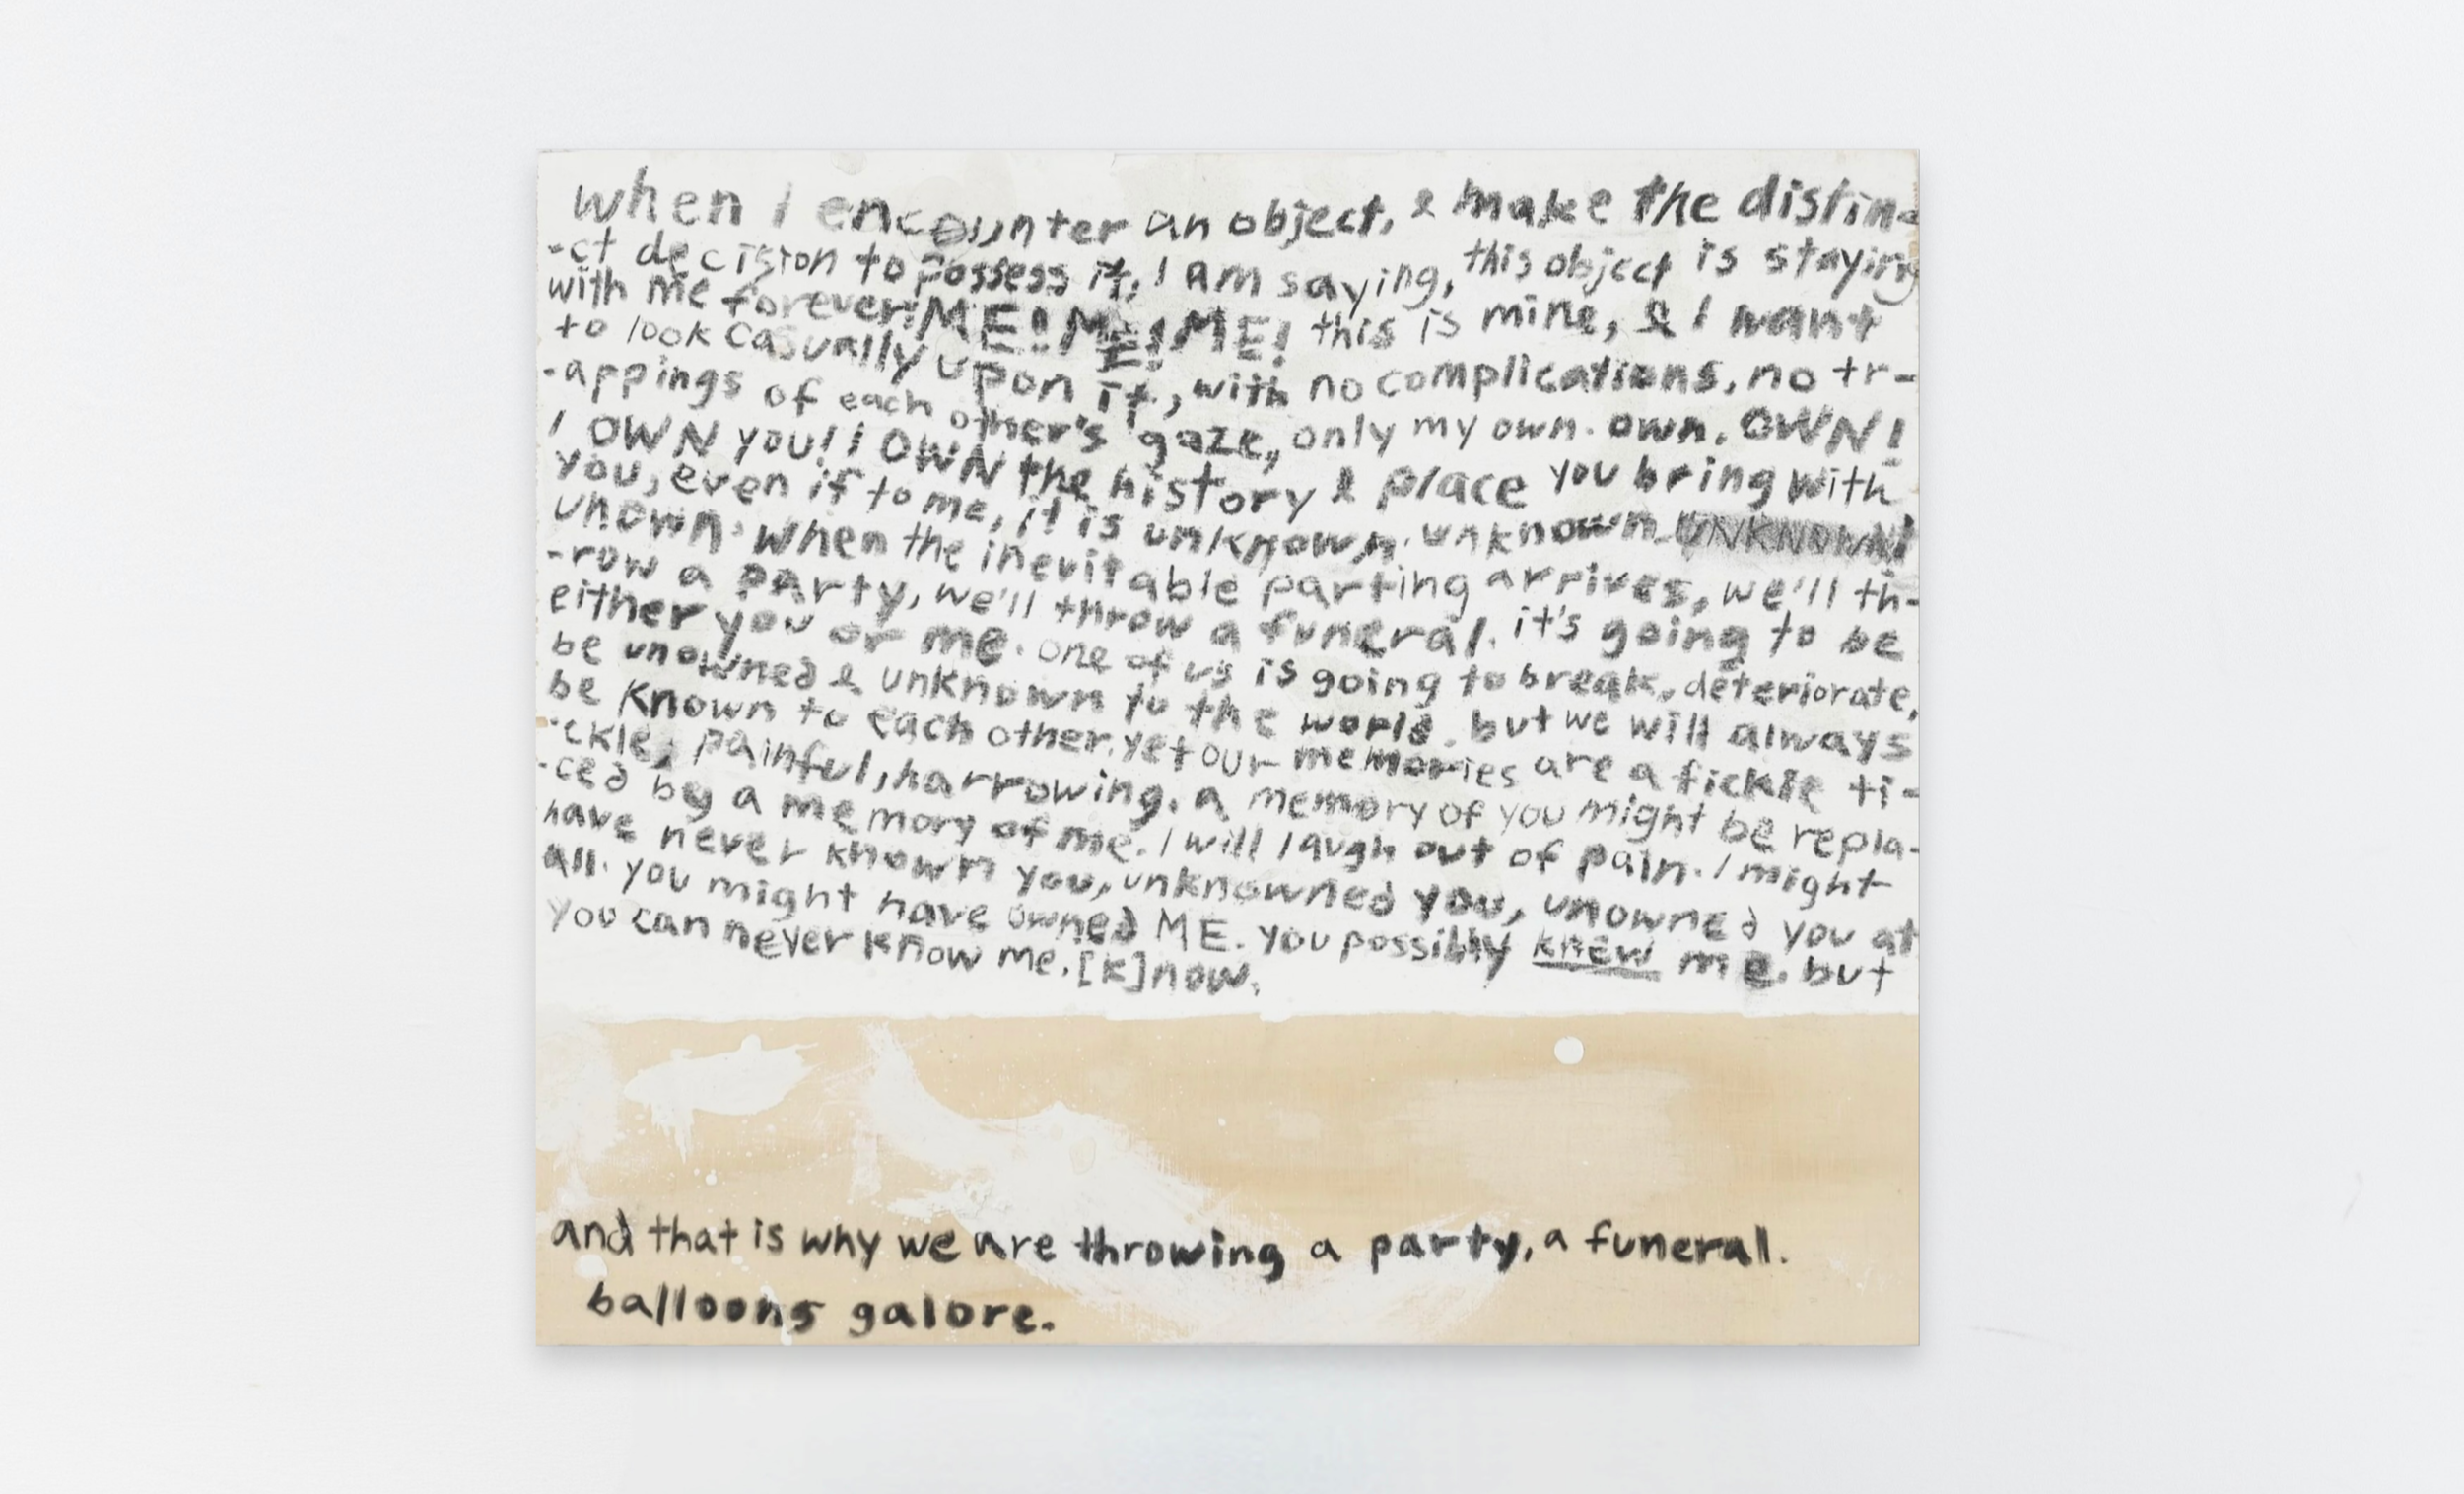 when I encounter an object, & make the distin-
-ct decision to possess it, I am saying, this object is staying
with me forever! ME! ME! ME! this is mine, & I want
to look casually upon it, with no complications, no tr-
-appings of each other's gaze, only my own. own. OWN!
I OWN you! I OWN the history & place you bring with
you, even if to me, it is unknown. unknown. UNKNOWN!
unown. when the inevitable parting arrives, we'll th-
-row a party, we'll throw a funeral. it's going to be
either you or me. one of us is going to break, deteriorate,
be unowned & unknown to the world. but we will always
be known to each other. yet our memories are a fickle ti-
-ckle, painful, harrowing. a memory of you might be repla-
-ced by a memory of me. I will laugh out of pain. I might
have never known you, unknowned you, unowned you at
all. you might have owned ME. you possibly knew me. but
you can never know me. [k]now.
and that is why we are throwing a party, a funeral.
balloons galore.